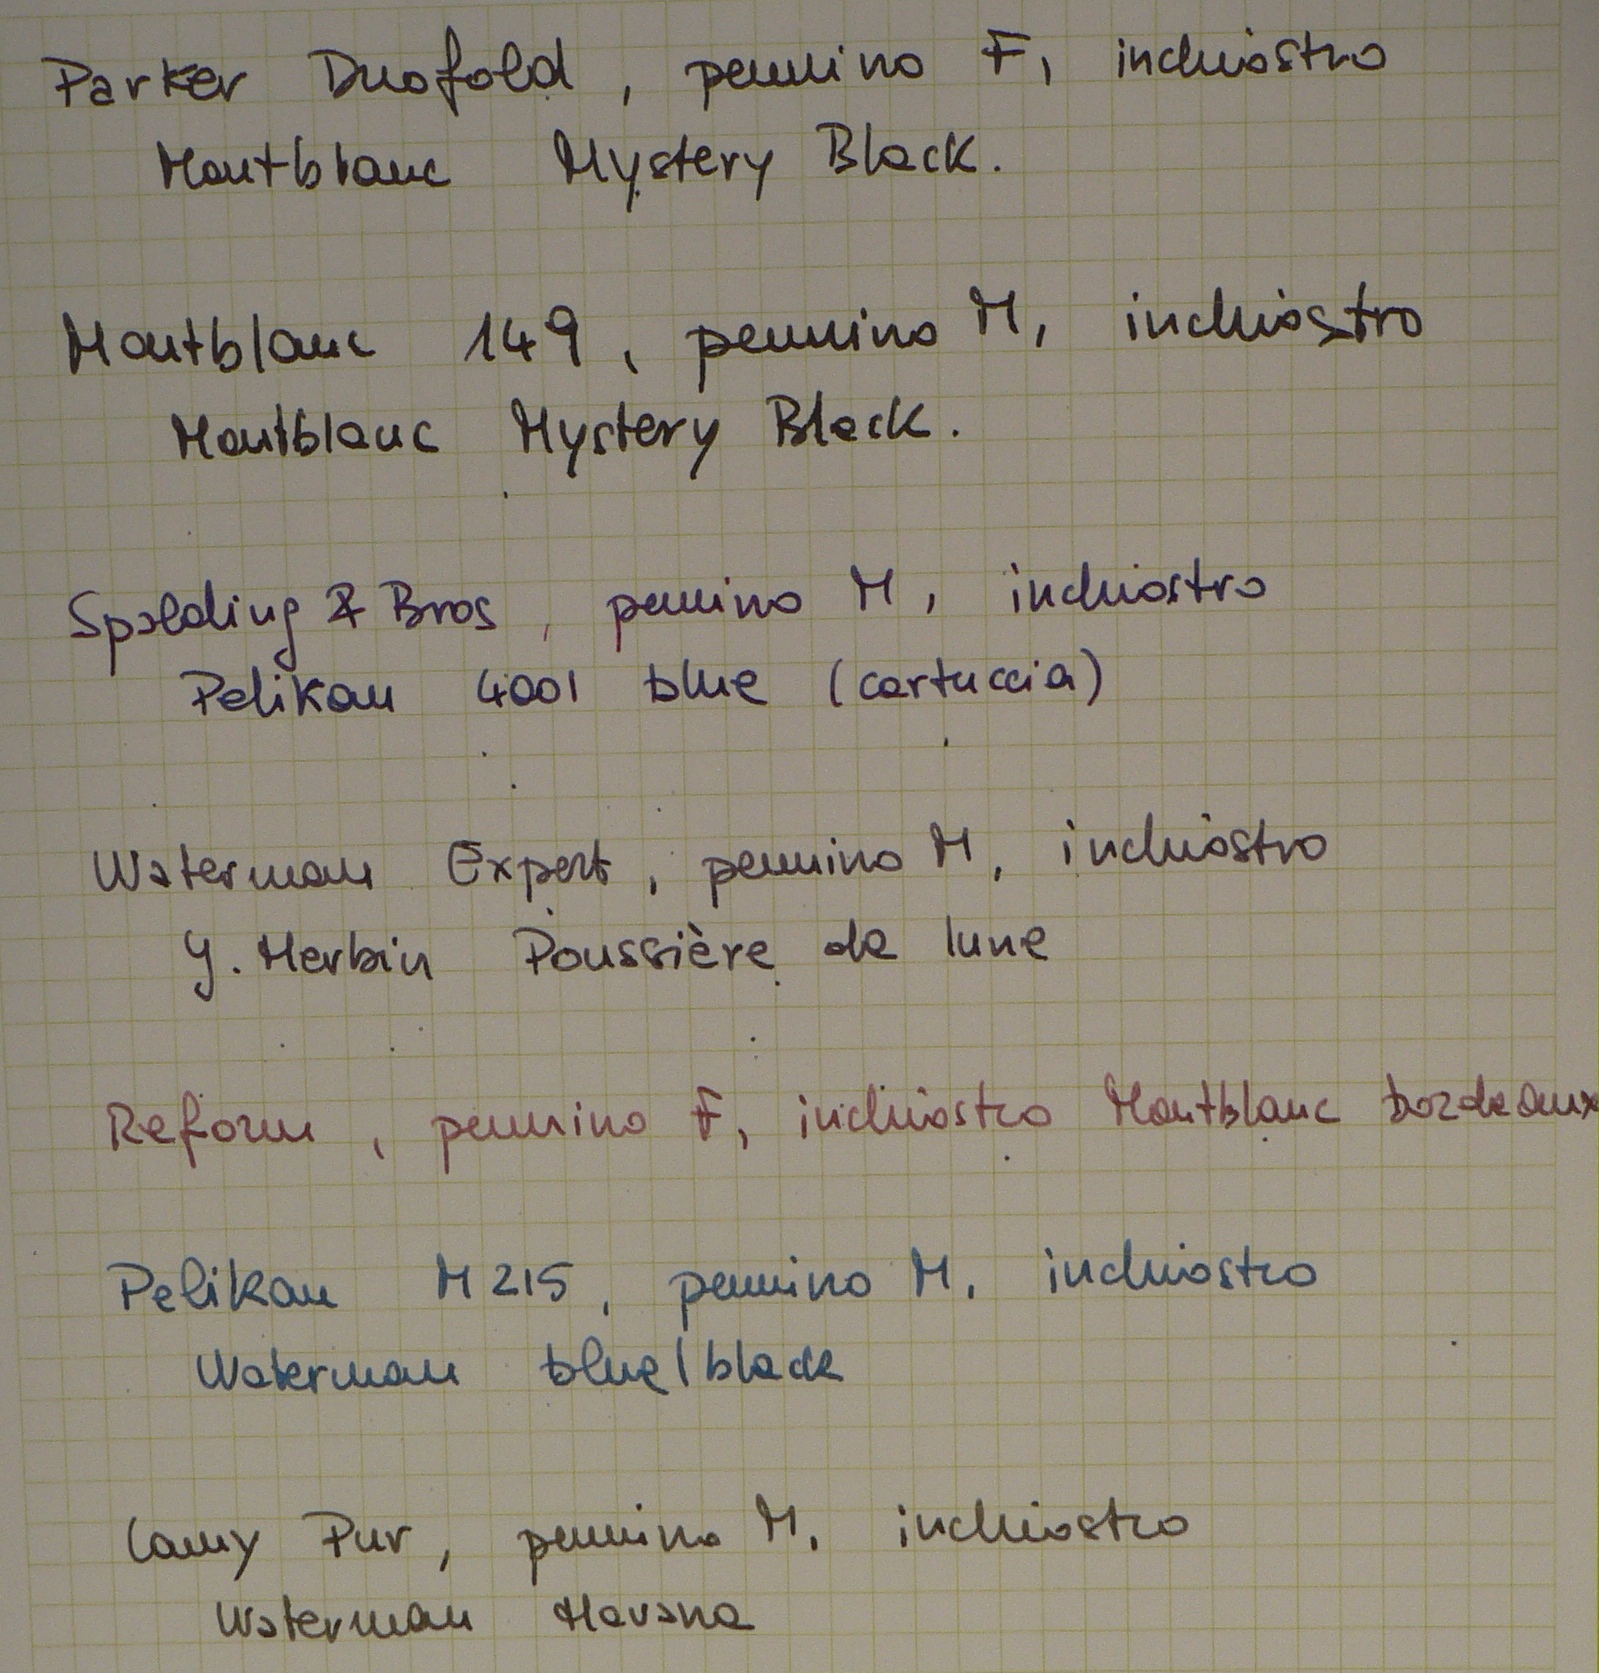 Parker Duofold, pennino F, inchiostro
Montblanc Mystery Black.
Montblanc 149, pennino M, inchiostro
Montblanc Mystery Black.
Spalding & Bros, pennino M, inchiostro
Pelikan 4001 blue (cartuccia)
Waterman Expert, pennino M, inchiostro
J. Herbin Poussière de lune
Reform, pennino F, inchiostro Montblanc bordeaux
Pelikan M215, pennino M, inchiostro
Waterman blue/black
Lamy Pur, pennino M, inchiostro
Waterman Havana